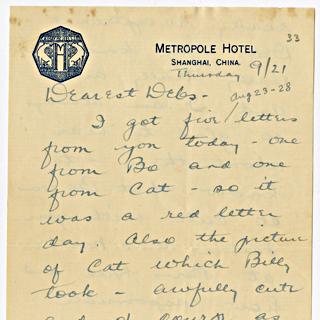 33
METROPOLE HOTEL
SHANGHAI, CHINA.
Thursday 9/21
Dearest Debs - Aug 23-28
I got five letters
from you today - one
from Bo and one
from Cat - so it
was a red letter
day. Also the picture
of Cat which Billy
took - awfully cute